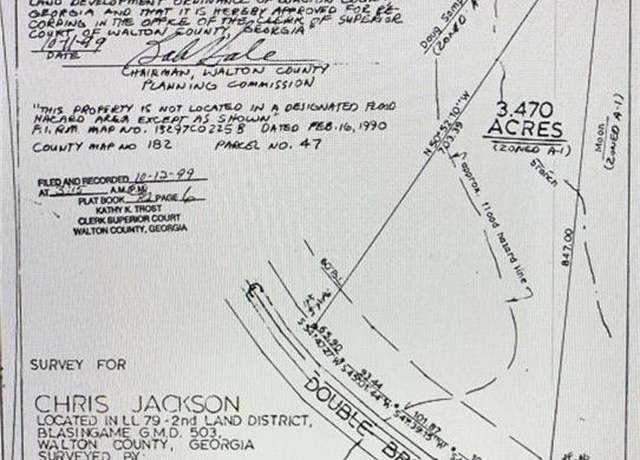 LAND DEVELOPMENT ORDINANCE OF WALTON COUNTY
GEORGIA AND THAT IT IS HEREBY APPROVED FOR RE-
CORDING IN THE OFFICE OF THE CLERK OF SUPERIOR
COURT OF WALTON COUNTY, GEORGIA"
10-11-99
DATE
CHAIRMAN, WALTON COUNTY
PLANNING COMMISSION
"THIS PROPERTY IS NOT LOCATED IN A DESIGNATED FLOOD
HAZARD AREA EXCEPT AS SHOWN"
F.I.R.M. MAP NO. 13297C0225B DATED FEB. 16, 1990
COUNTY MAP NO 182 PARCEL NO. 47
FILED AND RECORDED 10-12-99
AT 3:15 A.M./P.M.
PLAT BOOK 82 PAGE 6
KATHY K. TROST
CLERK SUPERIOR COURT
WALTON COUNTY, GEORGIA
Doug
(ZONED
N 50°52'10"W
703.39
3.470
ACRES
(ZONED A-1)
branch
Moon
(ZONED A-1)
847.00
approx. flood hazard line
60' BL
65.90
S 54°40'27"W
93.44
101.87
DOUBLE
SURVEY FOR
CHRIS JACKSON
LOCATED IN LL 79 - 2nd LAND DISTRICT,
BLASINGAME G.M.D. 503,
WALTON COUNTY, GEORGIA
SURVEYED BY: